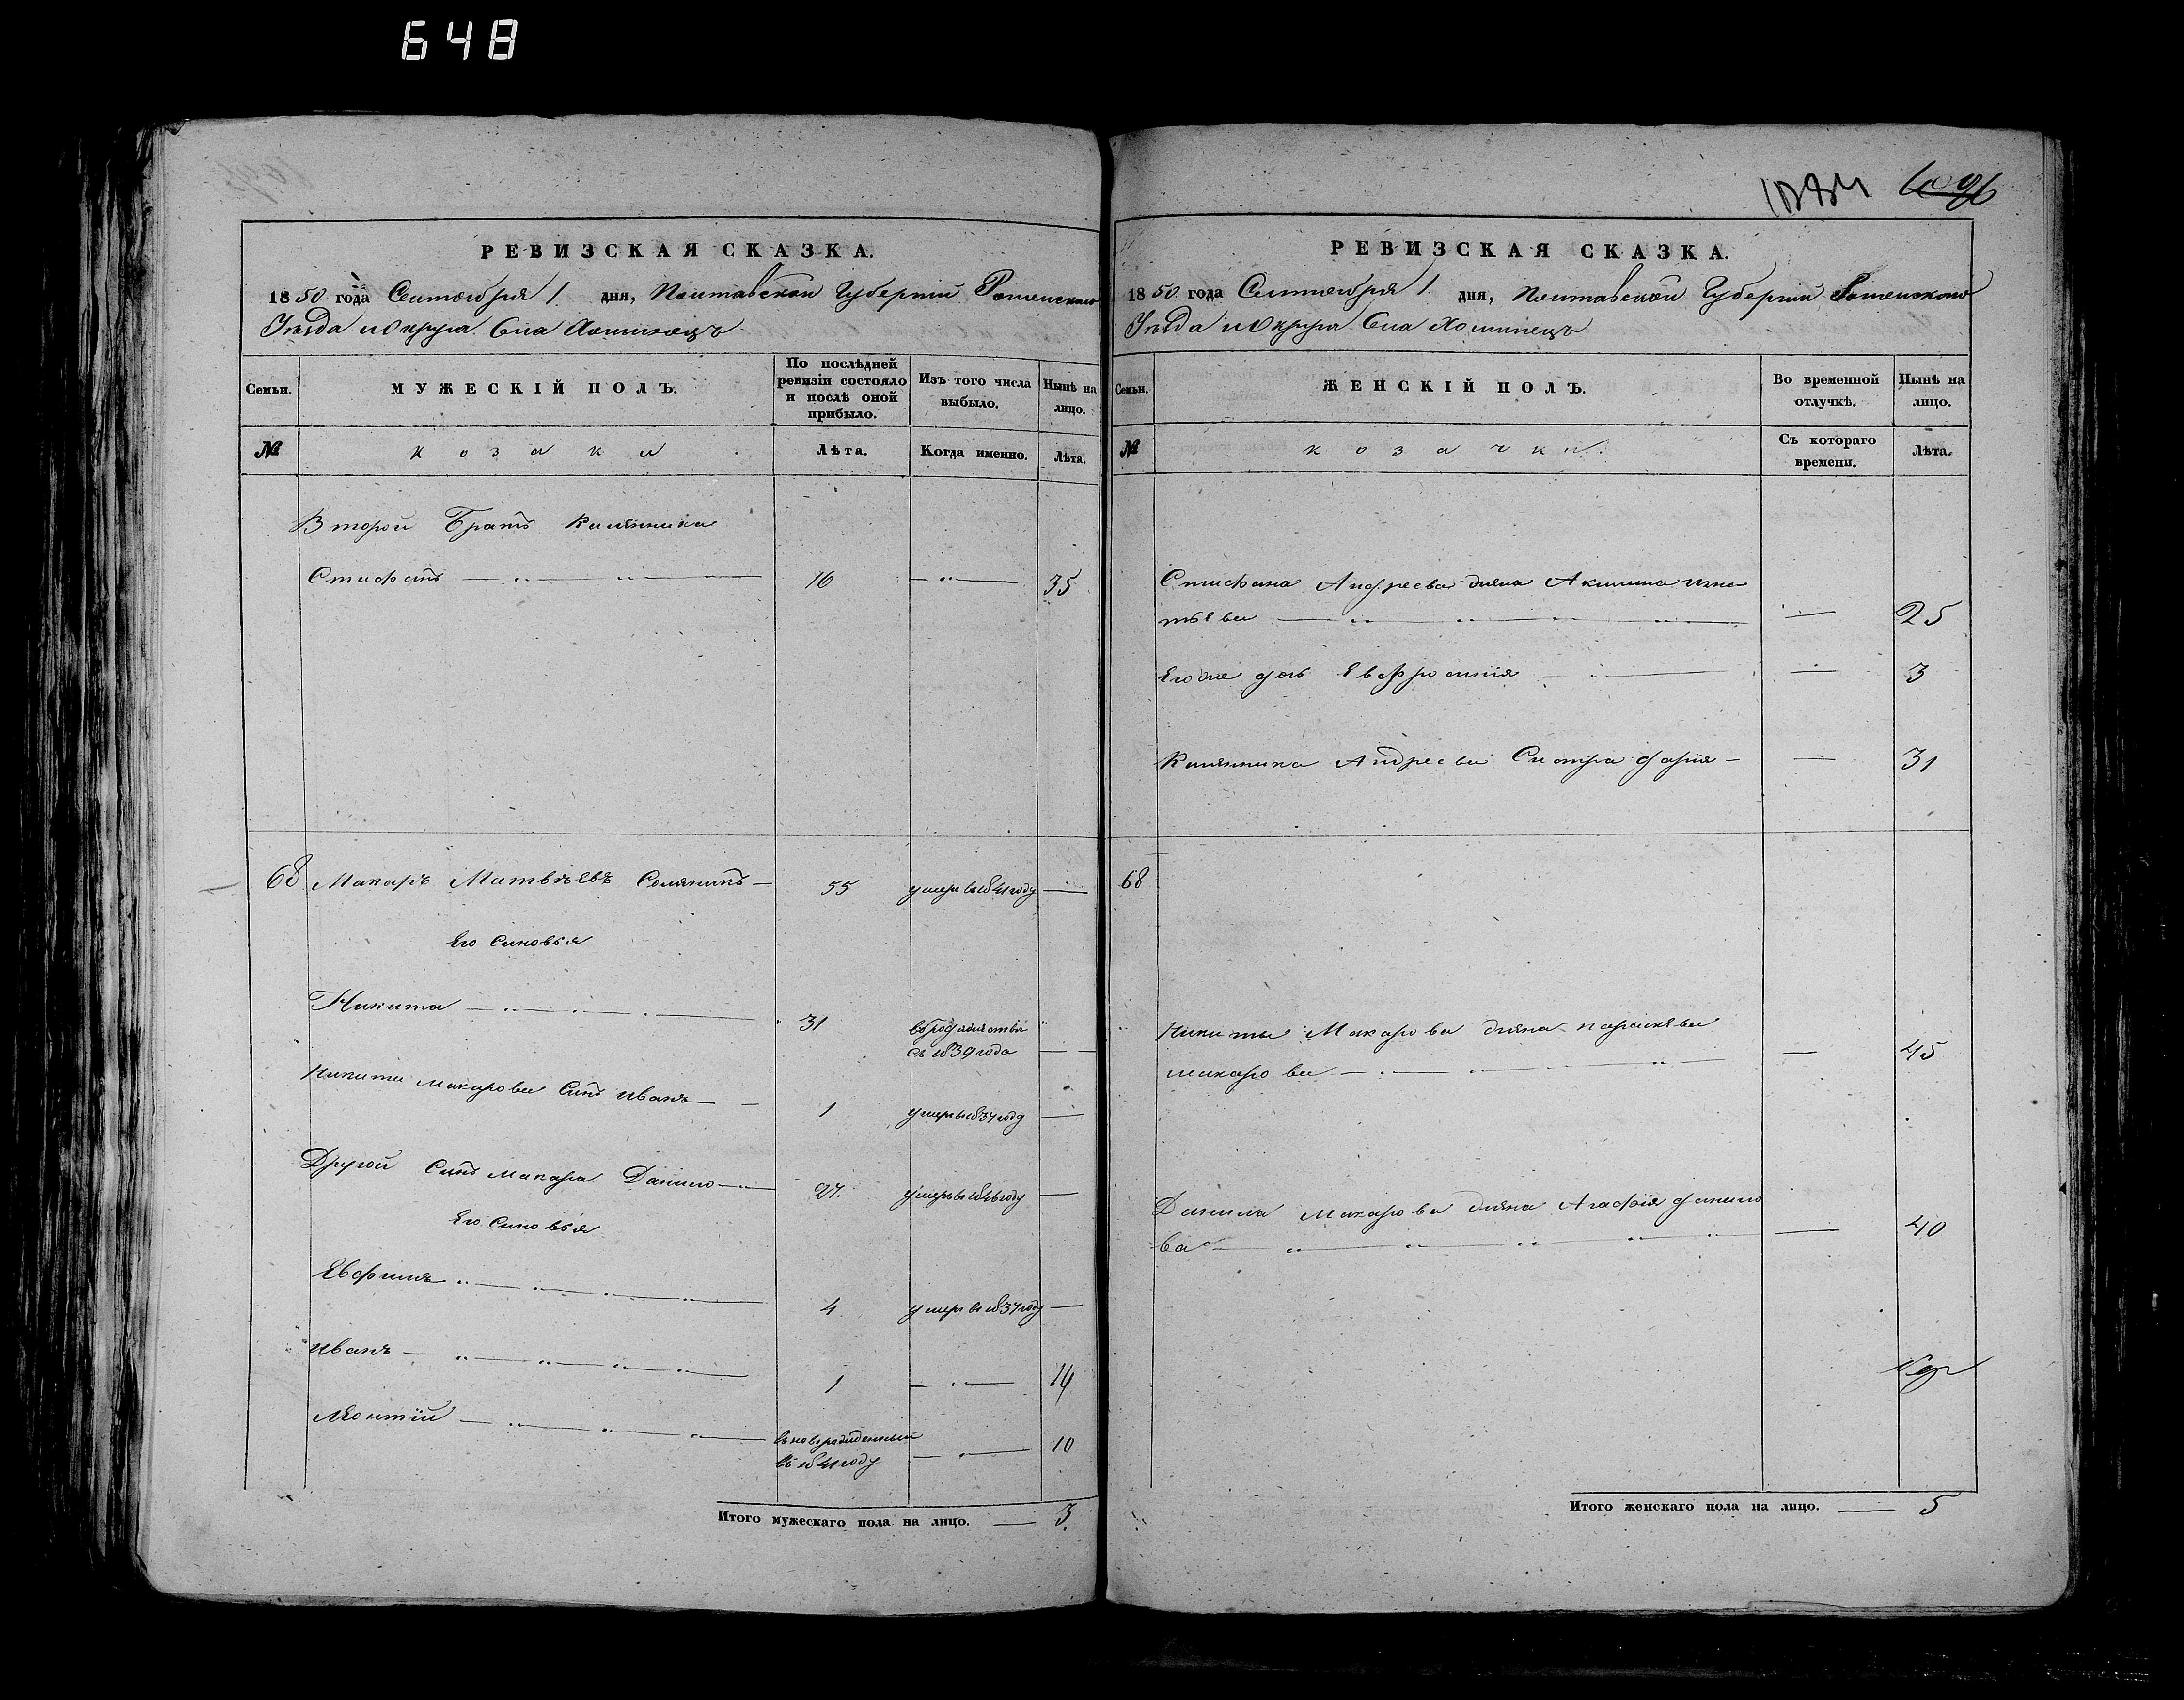 648
РЕВИЗСКАЯ СКАЗКА.
1850 года Сентября 1. дня, Полтавской Губернїи Роменского
Уезда и Округа Села Хоминець
Семьи.
МУЖЕСКІЙ ПОЛЪ.
По послѣдней ревизіи состояло и послѣ оной прибыло.
Изъ того числа выбыло.
Нынѣ на лицо.
№
козаки
Лѣта.
Когда именно.
Лѣта.
Второй Братъ Калѣнника
Стифанъ 16 35
68 Макаръ Матвѣевъ 55 умеръ в 1841 году
Его Синовья
Никита 31 в бродяжестве
съ 1839 года
Никити Макарова Синъ Иванъ 1 умеръ в 1837 году
Другой Синъ Макара Данило 27. умеръ в 1846 году
Его Синовья
Евфимъ 4 умеръ в 1837 году
Иванъ 1 14
Леонтїй вновърожденный 10
въ 1841 году
Итого мужескаго пола на лицо. 3
РЕВИЗСКАЯ СКАЗКА.
1850 года Сентября 1. дня, Полтавской Губернїи Роменского
Уезда и Округа Села Хоминець
Семьи.
ЖЕНСКІЙ ПОЛЪ.
Во временной отлучкѣ.
Нынѣ на лицо.
№
козачки.
Съ котораго времени.
Лѣта.
Стифана Андреева жена Акилина Игна
тьева 25
Его же дочь Евфросинїя 3
Калѣнника Андреева Сестра Дарїя 31
68
Никиты Макарова жена Параскева
Макарова 45
Данила Макарова жена Агафїя Данило
ва 40
Итого женскаго пола на лицо. 5